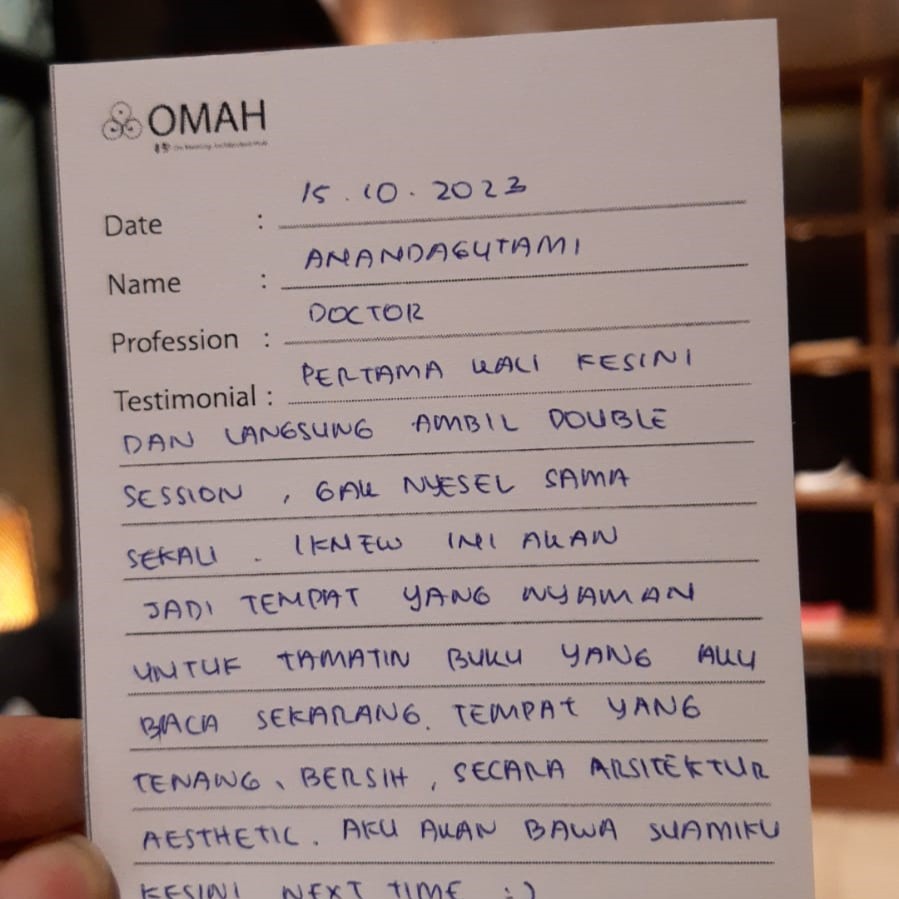 OMAH
Date : 15.10.2023
Name : ANANDAGUTAMI
Profession : DOCTOR
Testimonial : PERTAMA KALI KESINI
DAN LANGSUNG AMBIL DOUBLE
SESSION, GAK NYESEL SAMA
SEKALI. I KNEW INI AKAN
JADI TEMPAT YANG NYAMAN
UNTUK TAMATIN BUKU YANG AKU
BACA SEKARANG. TEMPAT YANG
TENANG, BERSIH, SECARA ARSITEKTUR
AESTHETIC. AKU AKAN BAWA SUAMIKU
KESINI NEXT TIME :)